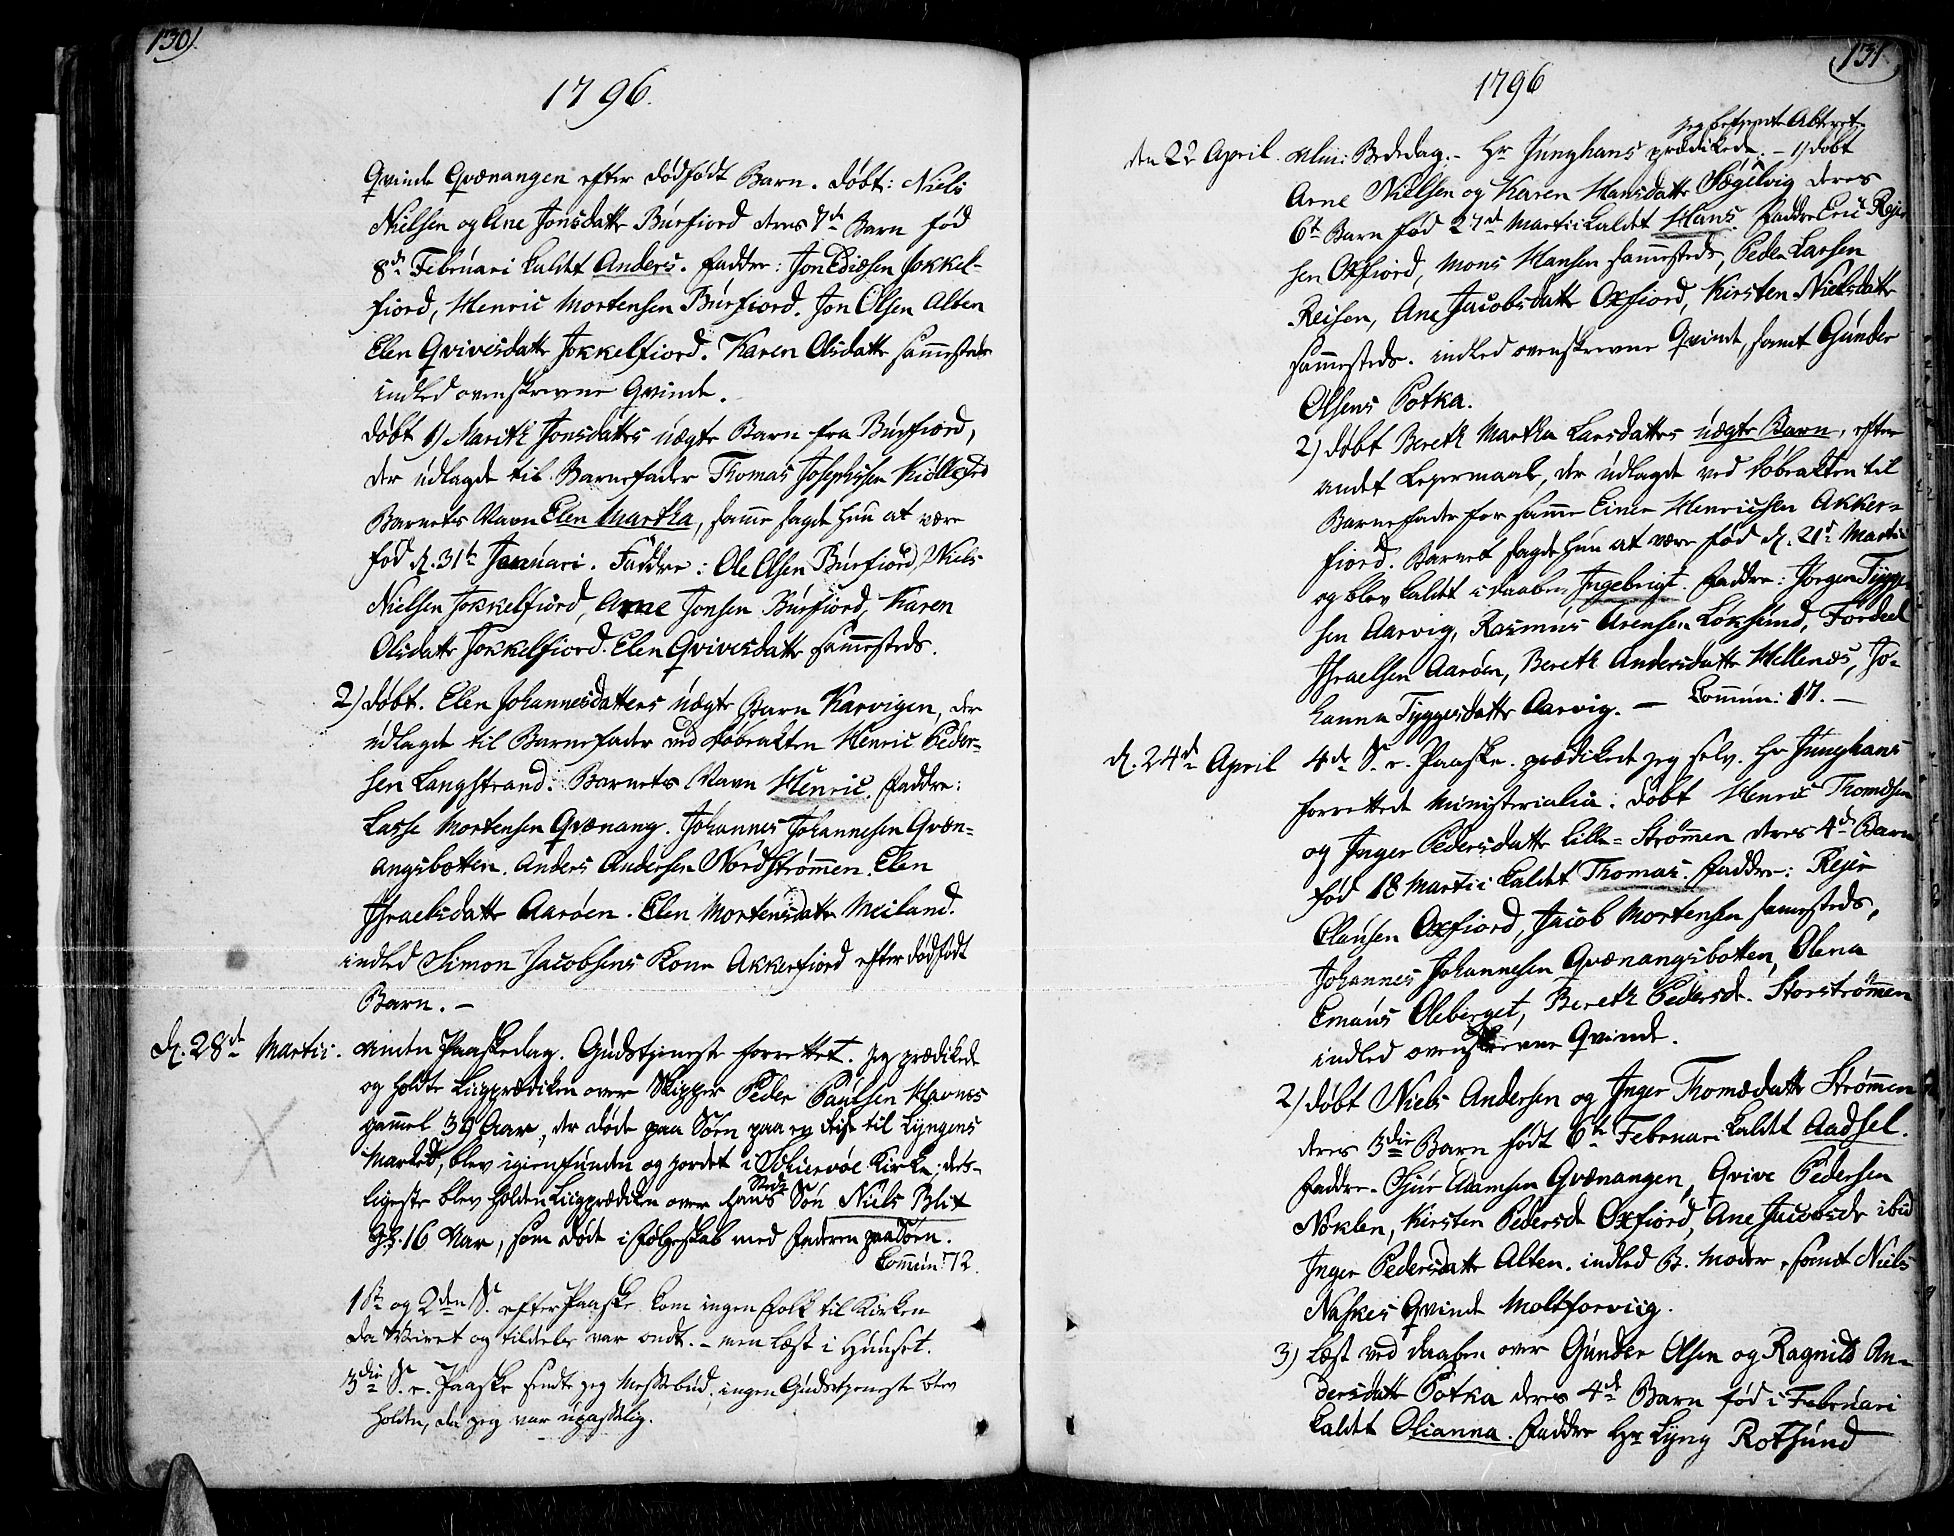 130).
1796.
Qvinde Qvænangen efter dødfødt Barn. døbt: Niels
Nielsen og Ane Jonsdatt Burfiord deres 7de Barn fød
8de Februari kaldt Anders. Faddre: Jon Jokkel-
fiord, Henric Mortensen Burfiord. Jon Olsen Alten
Elen Qvivesdatt Jokkelfiord. Karen Olsdatt sammesteds
indled ovenskrevne Qvinde.
døbt 1) Marith Jonsdatters uægte Barn fra Burfiord,
der udlagde til Barnefader Thomas Josephsen
Barnets Navn Elen Martha, samme sagde hun at være
fød d. 31te Januari. Faddre: Ole Olsen Burfiord, Niels
Nielsen Jokkelfiord, Arne Jonsen Burfiord, Karen
Olsdatt Jokkelfiord. Elen Qvivesdatt sammesteds.
2) døbt. Elen Johannesdatters uægte Barn Karvigen, der
udlagde til Barnefader ved døbeakten Henric Peder-
sen Langstrand. Barnets Navn Henric. Faddre:
Lasse Mortensen Qvænang. Johannes Johannesen Qvæn-
angsbotten. Anders Andersen Nordstrømmen. Elen
Israelsdatt Aarøen. Elen Mortensdatt Meiland.
indled Simon Jacobsens Kone Akkerfiord efter dødfødt
Barn. –
d. 28de Martii. anden Paaskedag. Gudstjeneste forrettet. jeg prædikede
og holdte Liigprædiken over Skipper Peder Paulsen Havnes
gammel 39 Aar, der døde paa Søen paa en Reise til Lyngens
Marked, blev igienfunden og jordet i Schiervøe Kirke, des-
ligeste blev holden Liigprædiken over hans Sted Søn Niels Blix
gl. 16 Aar, som døde i følgeskab med Faderen paa Søen.
Commun: 72.
1ste og 2den S. efter Paaske kom ingen Folk til Kirken
da Veiret og var ondt. – men Læst i Huuset.
3die S. e. Paaske sendte jeg Messebud, ingen Gudstjeneste blev
holden, da jeg var upasselig.
131.
1796
jeg betjente Alteret
den 22 April Alm: Bededag. – Hr Junghans prædikede. – 1) døbt
Arne Nielsen og Karen Hansdatt Søgelvig deres
6te Barn fød 27de Martii kaldt Hans. Faddre Eric Rejer
sen Oxfiord, Mons Hansen sammesteds, Peder Larsen
Reisen, Ane Jacobsdatt Oxfiord, Kirsten Nielsdatt
sammesteds. indled ovenskrevne Qvinde, samt Gunder
Olsens Potka.
2) døbt Bereth Martha Larsdatters uægte Barn, efter
andet Leiermaal, der udlagde ved døbeakten til
Barnefader for samme Einer Henrichsen Akker-
fiord. Barnet sagde hun at være fød d. 21de Martii
og blev kaldt i daaben Ingebrigt. Faddre: Jørgen Tygge
sen Aarvig, Rasmus Arensen Loksund, Fordeel
Israelsen Aarøen, Bereth Andersdatt Hellenes, Jo-
hanna Tyggesdatt Aarvig. – Commun: 17. –
d. 24de April 4de S. e. Paaske. prædikede jeg selv. Hr Junghans
forrettede Ministerialia. døbt Henric Thomdsen
og Inger Pedersdatt Lille-Strømmen deres 4de Barn
fød 18 Martii kaldt Thomas. Faddre: Rejer
Clausen Oxfiord, Jacob Mortensen sammesteds,
Johannes Johannesen Qvænangsbotten, Olena
Emaus Oleberget, Bereth Pedersd. Storstrømmen
indled ovenskrevne Qvinde.
2) døbt Niels Andersen og Inger Thomædatt Strømmen
deres 3die Barn født 6te Februari kaldt Aadsel.
Faddre. Siur Adamsen Qvænangen, Qvive Pedersen
Noklen, Kirsten Pedersd Oxfiord, Ane Jacobsdr ibid
Inger Pedersdatt Alten. indled B. Moder, samt Niels
Naskes Qvinde Moltforviig.
3) Læst ved daaben over Gunder Olsen og Ragnild An-
dersdatt Potka deres 4de Barn fød i Februari
kaldt Olianna. Faddre Hr Lyng Rotsund